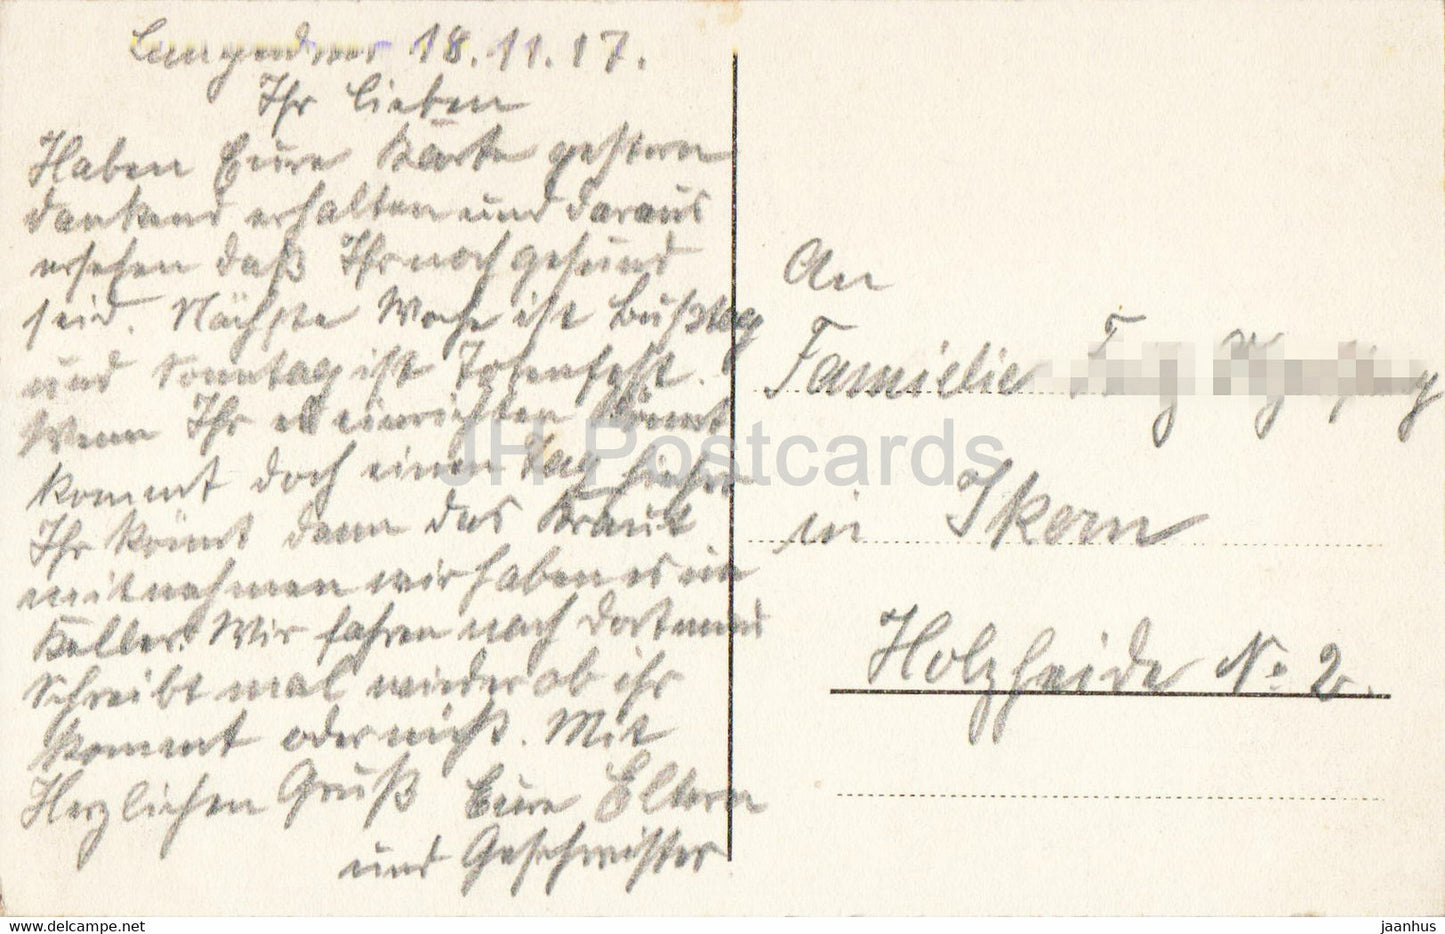 Langendreer 18.11.17.
Ihr Lieben
Haben Eure Karte gestern
dankend erhalten und daraus
ersehen daß Ihr noch gesund
seid. Nächste Woche ist Bußtag
und Sonntag ist Totenfest.
Wenn Ihr es einrichten könnt
kommt doch einen Tag hieher
Ihr könnt dann das Kraut
mitnehmen wir haben es im
Keller. Wir fahren nach Dortmund
Schreibt mal wieder ob ihr
kommt oder nicht. Mit
Herzlichen Gruß Eure Eltern
und Geschwister
An
Familie
in Ikern
Holzheide No 2.
JH Postcards
www.hippostcard.com
jaanhus